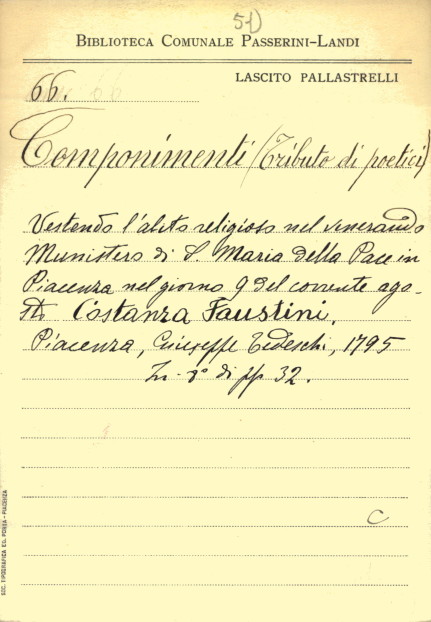 51)
BIBLIOTECA COMUNALE PASSERINI-LANDI
LASCITO PALLASTRELLI
66. 66
Componimenti (Tributo di poetici)
Vestendo l'abito religioso nel venerando
Munistero di S. Maria della Pace in
Piacenza nel giorno 9 del corrente ago-
sto Costanza Faustini.
Piacenza, Giuseppe Tedeschi, 1795
In-8° di pp 32.
C
SOC. TIPOGRAFICA ED. PORTA - PIACENZA